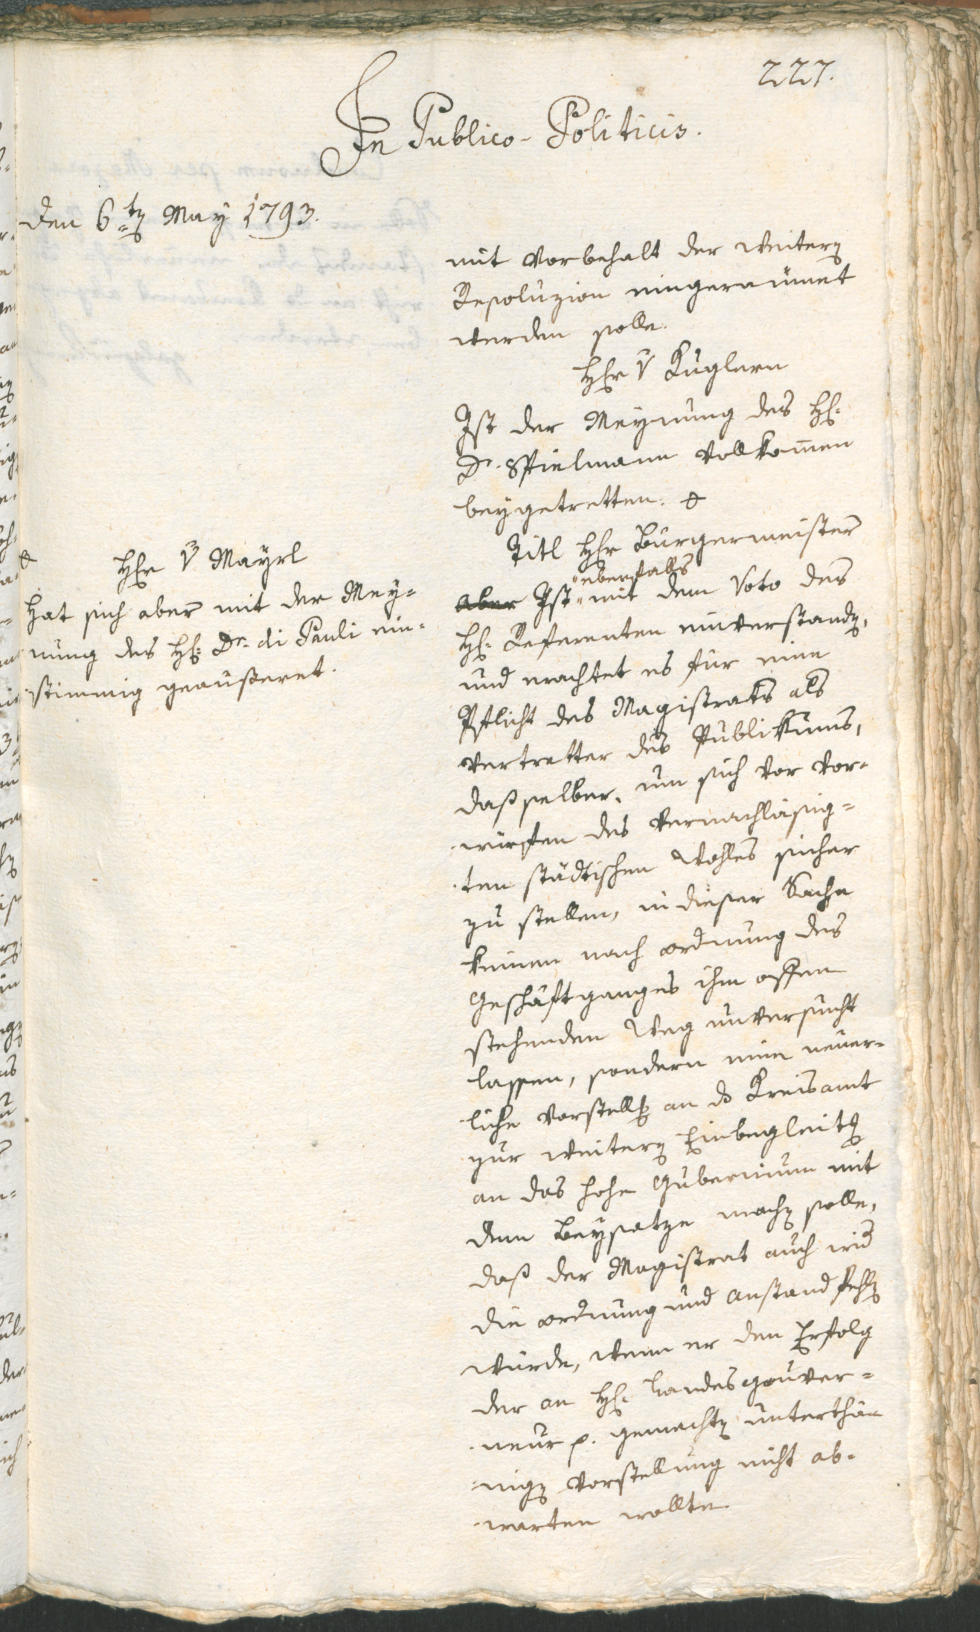 227.
In Publico-Politicis.
Den 6ten May 1793.
mit Vorbehalt der weitern
Resoluzion eingeraumet
werden solle.
Hr v Kuglern
Ist der Meynung des H.
Dr. Spielmann vollkom̅en
beygetretten. +
+
Hr v Mayrl
Hat sich aber mit der Mey=
nung des H: Dr. di Pauli ein=
stimmig geaußeret.
Titl Hr Burgermeister
aber Ist ebenfalls mit dem Voto des
H: Referenten einverstanden,
und erachtet es für eine
Pflicht des Magistrats als
Vertretter des Publikums,
daß selber, um sich vor Vor=
würfen des vernachläsig=
ten städtischen Wohles sicher
zu stellen, in dieser Sache
keinen nach Ordnung des
Geschäftganges ihm offen
stehenden Weg unversucht
lassen, sondern eine neuer=
liche Vorstellg an d Kreisamt
zur weitern Einbegleitg
an das hohe Gubernium mit
dem Beysatze machen solle,
daß der Magistrat auch wid
die Ordnung und Anstand fehlen
würde, wenn er den Erfolg
der an H: Landesgouver=
neur p. gemachten unterthä=
nigen Vorstellung nicht ab=
warten wollte.